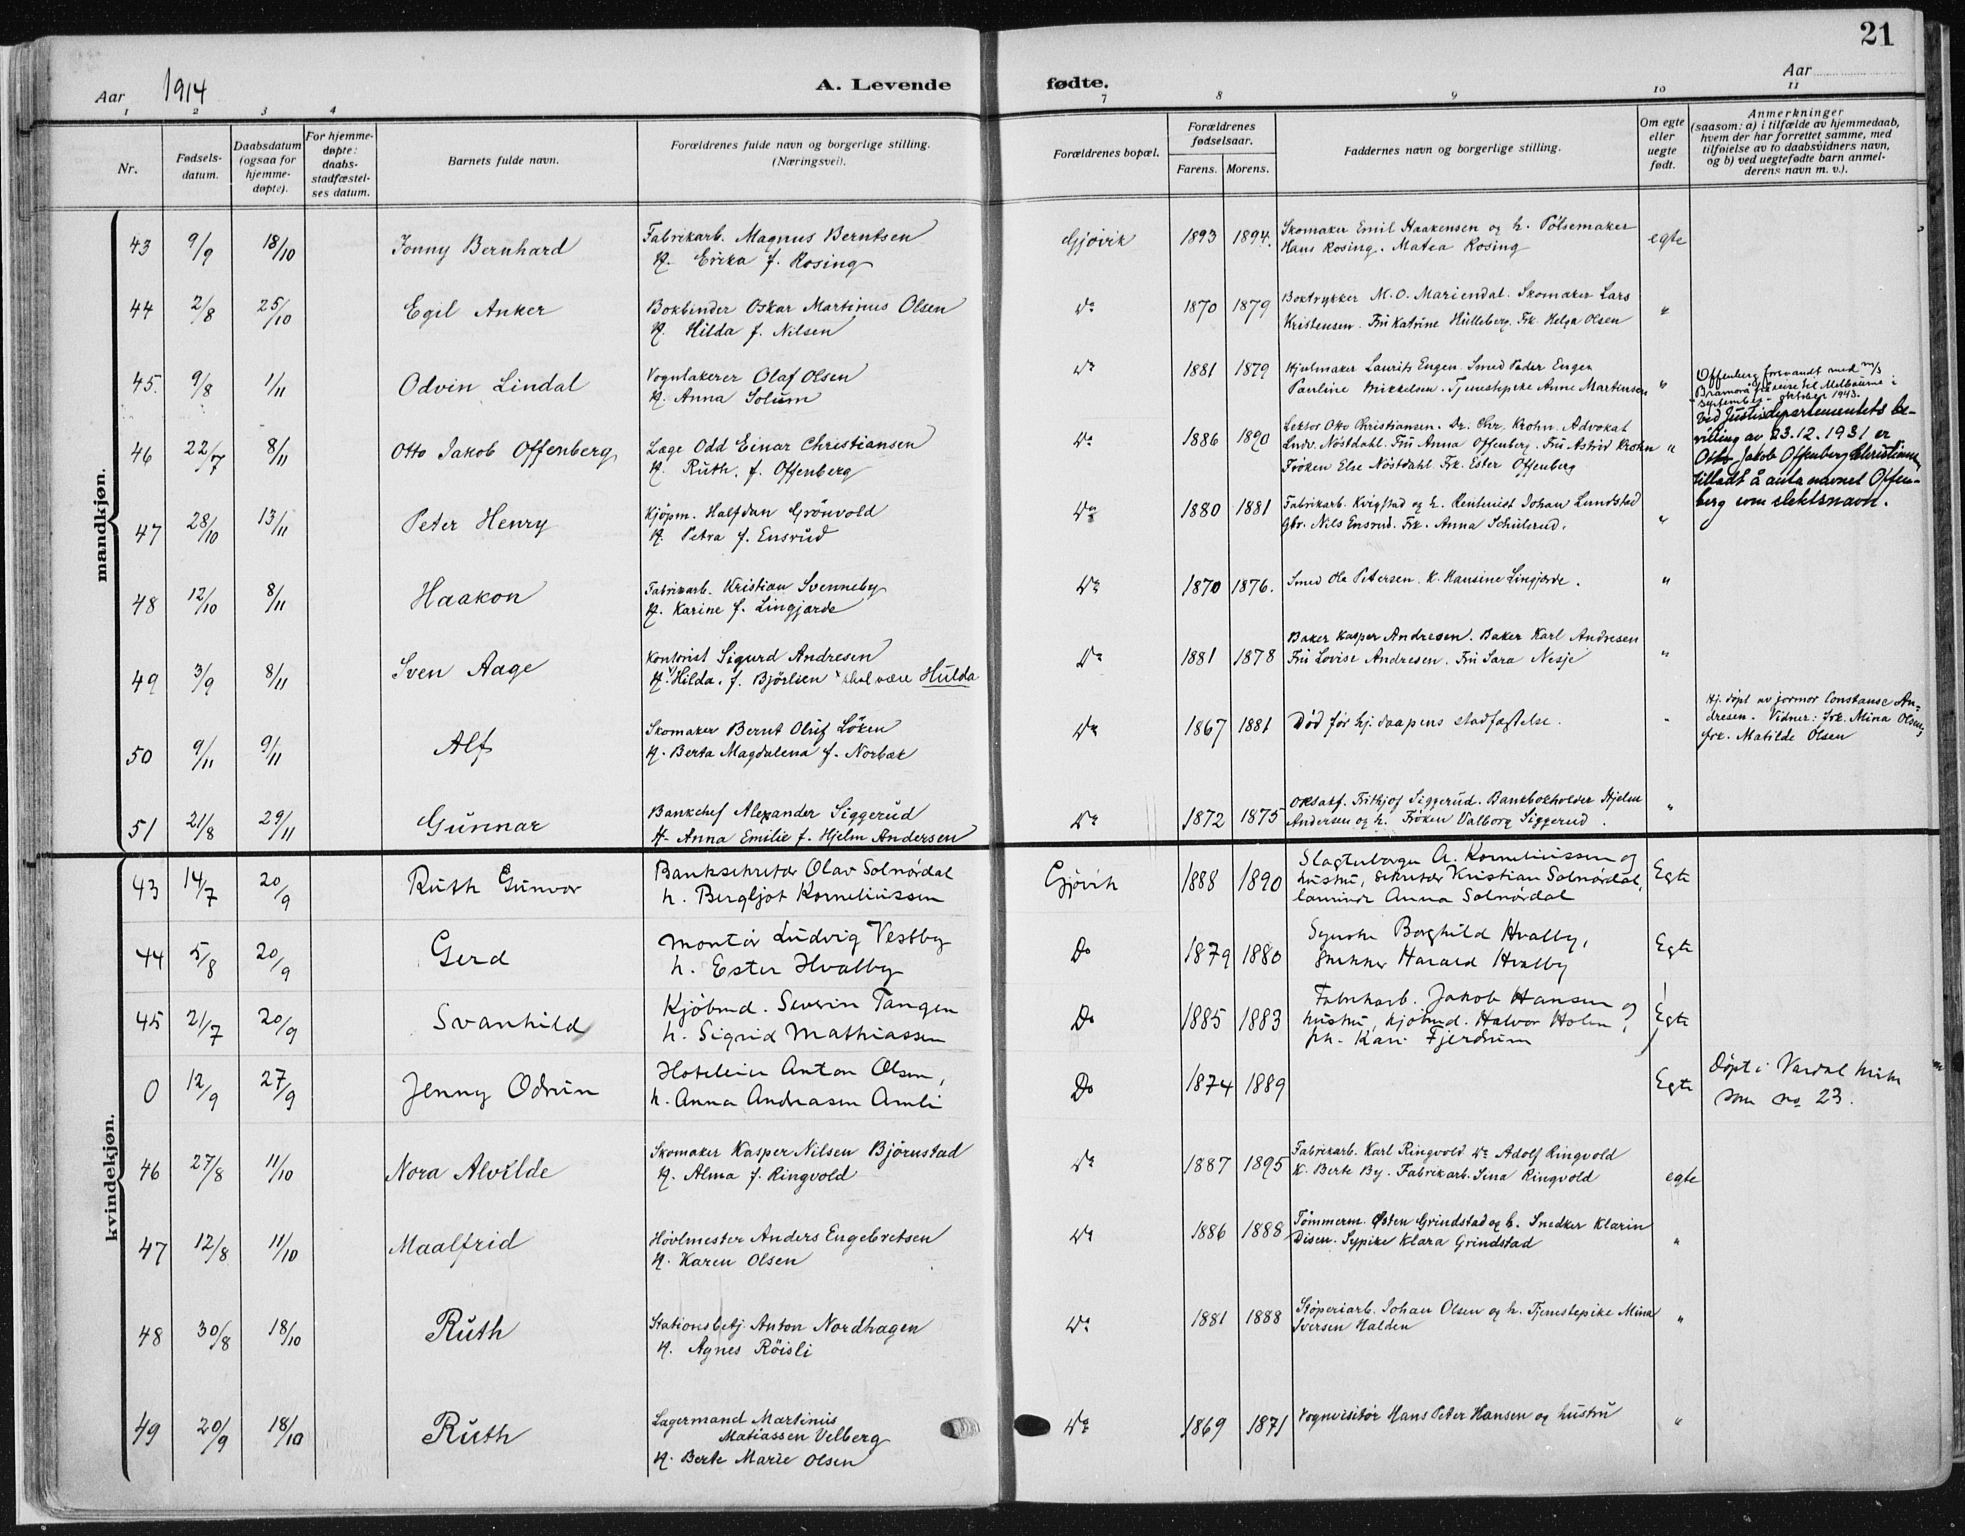 21
Aar 1914
A. Levende fødte.
Aar
1 2 3 4 7 8 9 10 11
Nr.
Fødsels-datum.
Daabsdatum (ogsaa for hjemme-døpte).
For hjemme-døpte: daabs-stadfæstel-ses datum.
Barnets fulde navn.
Forældrenes fulde navn og borgerlige stilling. (Næringsvei).
Forældrenes bopæl.
Forældrenes fødselsaar.
Farens. Morens.
Faddernes navn og borgerlige stilling.
Om egte eller uegte født.
Anmerkninger
(saasom: a) i tilfælde av hjemmedaab,
hvem der har forrettet samme, med
tilføielse av to daabsvidners navn,
og b) ved uegtefødte barn anmel-
derens navn m. v.).
mandkjøn.
43 9/9 18/10 Jonny Bernhard Fabrikarb. Magnus Berntsen Gjøvik 1893 1894. Skomaker Emil Haakensen og h. Pølsemaker egte
H. Erika f. Rosing Hans Rosing. Matea Rosing
44 2/8 25/10 Egil Anker Bokbinder Oskar Martinius Olsen Do 1870 1879 Boktrykker M. O. Mariendal. Skomaker Lars "
H. Hilda f. Nilsen Kristensen. Fru Katrine Hulleberg. Frk. Helga Olsen
45. 9/8 1/11 Odvin Lindal Vognlakerer Olaf Olsen Do 1881 1879 Hjulmaker Laurits Engen. Smed Peder Engen
H. Anna Solum Pauline Mikkelsen. Tjenestepike Anne Martinsen "
Offenberg forsvandt med m/s
Bramora på reise til Melbourne i
september - oktober 1943.
46 22/7 8/11 Otto Jakob Offenberg Læge Odd Einar Christiansen Do 1886 1890 Lektor Otto Christiansen. Dr. Chr. Krohn. Advokat
H. Ruth. f. Offenberg Ludv. Nöstdahl. Fru Anna Offenberg. Fru Astrid Krohn "
Fröken Else Nöstdahl. Frk. Ester Offenberg
Ved Justisdepartementets be-
villing av 23.12.1931 er
Otto Jakob Offenberg Christianse
tilladt å anta navnet Offen-
berg som slektsnavn.
47 28/10 13/11 Peter Henry Kjøpm. Halfdan Grönvold Do 1880 1881 Fabrikarb. Kvigstad og h. Rentenist Johan Lundstad
H. Petra f. Ensrud Gbr. Nils Ensrud. Frk. Anna Schulerud. "
48 12/10 8/11 Haakon Fabrikarb. Kristian Svenneby Do 1870 1876. Smed Ole Petersen. K. Hansine Lingjærde. "
H. Karine f. Lingjærde
49 3/9 8/11 Sven Aage Kontorist Sigurd Andresen Do 1881 1878 Baker Kasper Andresen. Baker Karl Andresen
H. x Hilda. f. Björlsen x skal være Hulda Fru Lovise Andresen. Fru Sara Nesje "
50 9/11 9/11 Alf Skomaker Bernt Oluf Löken Do 1867 1881 Död för hj. daapens stadfæstelse. "
H. Berta Magdalena f. Norbak
Hj. døpt av jormor Constanse An-
dresen. Vidner: frk. Mina Olsen,
frk. Matilde Olsen
51 21/8 29/11 Gunnar Bankchef Alexander Siggerud Do 1872 1875 Oksakf. Frithjof Siggerud. Bankbokholder Hjelm "
H. Anna Emilie f. Hjelm Andersen Andersen og h. Fröken Valborg Siggerud.
kvindekjøn.
43 14/7 20/9 Ruth Gunvor Banksekretær Olav Solnördal Gjövik 1888 1890 Slagterborger A. Korneliussen og Egte
h. Bergljot Korneliussen hustru, sekretær Kristian Solnördal,
lærerinde Anna Solnördal
44 5/8 20/9 Gerd Montör Ludvig Vestby Do 1879 1880 Syerske Borghild Hvalby, Egte
h. Ester Hvalby snekker Harald Hvalby
45 21/7 20/9 Svanhild Kjöbmd. Severin Tangen Do 1885 1883 Fabrikarb. Jakob Hansen og Egte
h. Sigrid Mathiassen hustru, kjöbmd. Halvor Holen,
pk. Kari Fjerdrum
0 12/9 27/9 Jenny Odrun Hoteleier Anton Olsen, Do 1874 1889 Egte Döpt i Vardal kirke
h. Anna Andrasen Amli som no 23.
46 27/8 11/10 Nora Alvilde Skomaker Kasper Nilsen Björnstad Do 1887 1895 Fabrikarb. Karl Ringvold Do Adolf Ringvold egte
H. Alma f. Ringvold K. Berte By. Fabrikarb. Sina Ringvold
47 12/8 11/10 Maalfrid Hövlmester Anders Engebretsen Do 1886 1888 Tömmerm. Østen Grindstad og h. Snedker Klarin "
H. Karen Olsen Disen. Sypike Klara Grindstad
48 30/8 18/10 Ruth Stationsbetj. Anton Nordhagen Do 1881 1888 Støperiarb. Johan Olsen og h. Tjenestepike Mina "
H. Agnes Röisli Iversen Halden
49 20/9 18/10 Ruth Lagermand Martinius Do 1869 1871 Vognvisitör Hans Peter Hansen og hustru "
Matiassen Velberg
H. Berte Marie Olsen